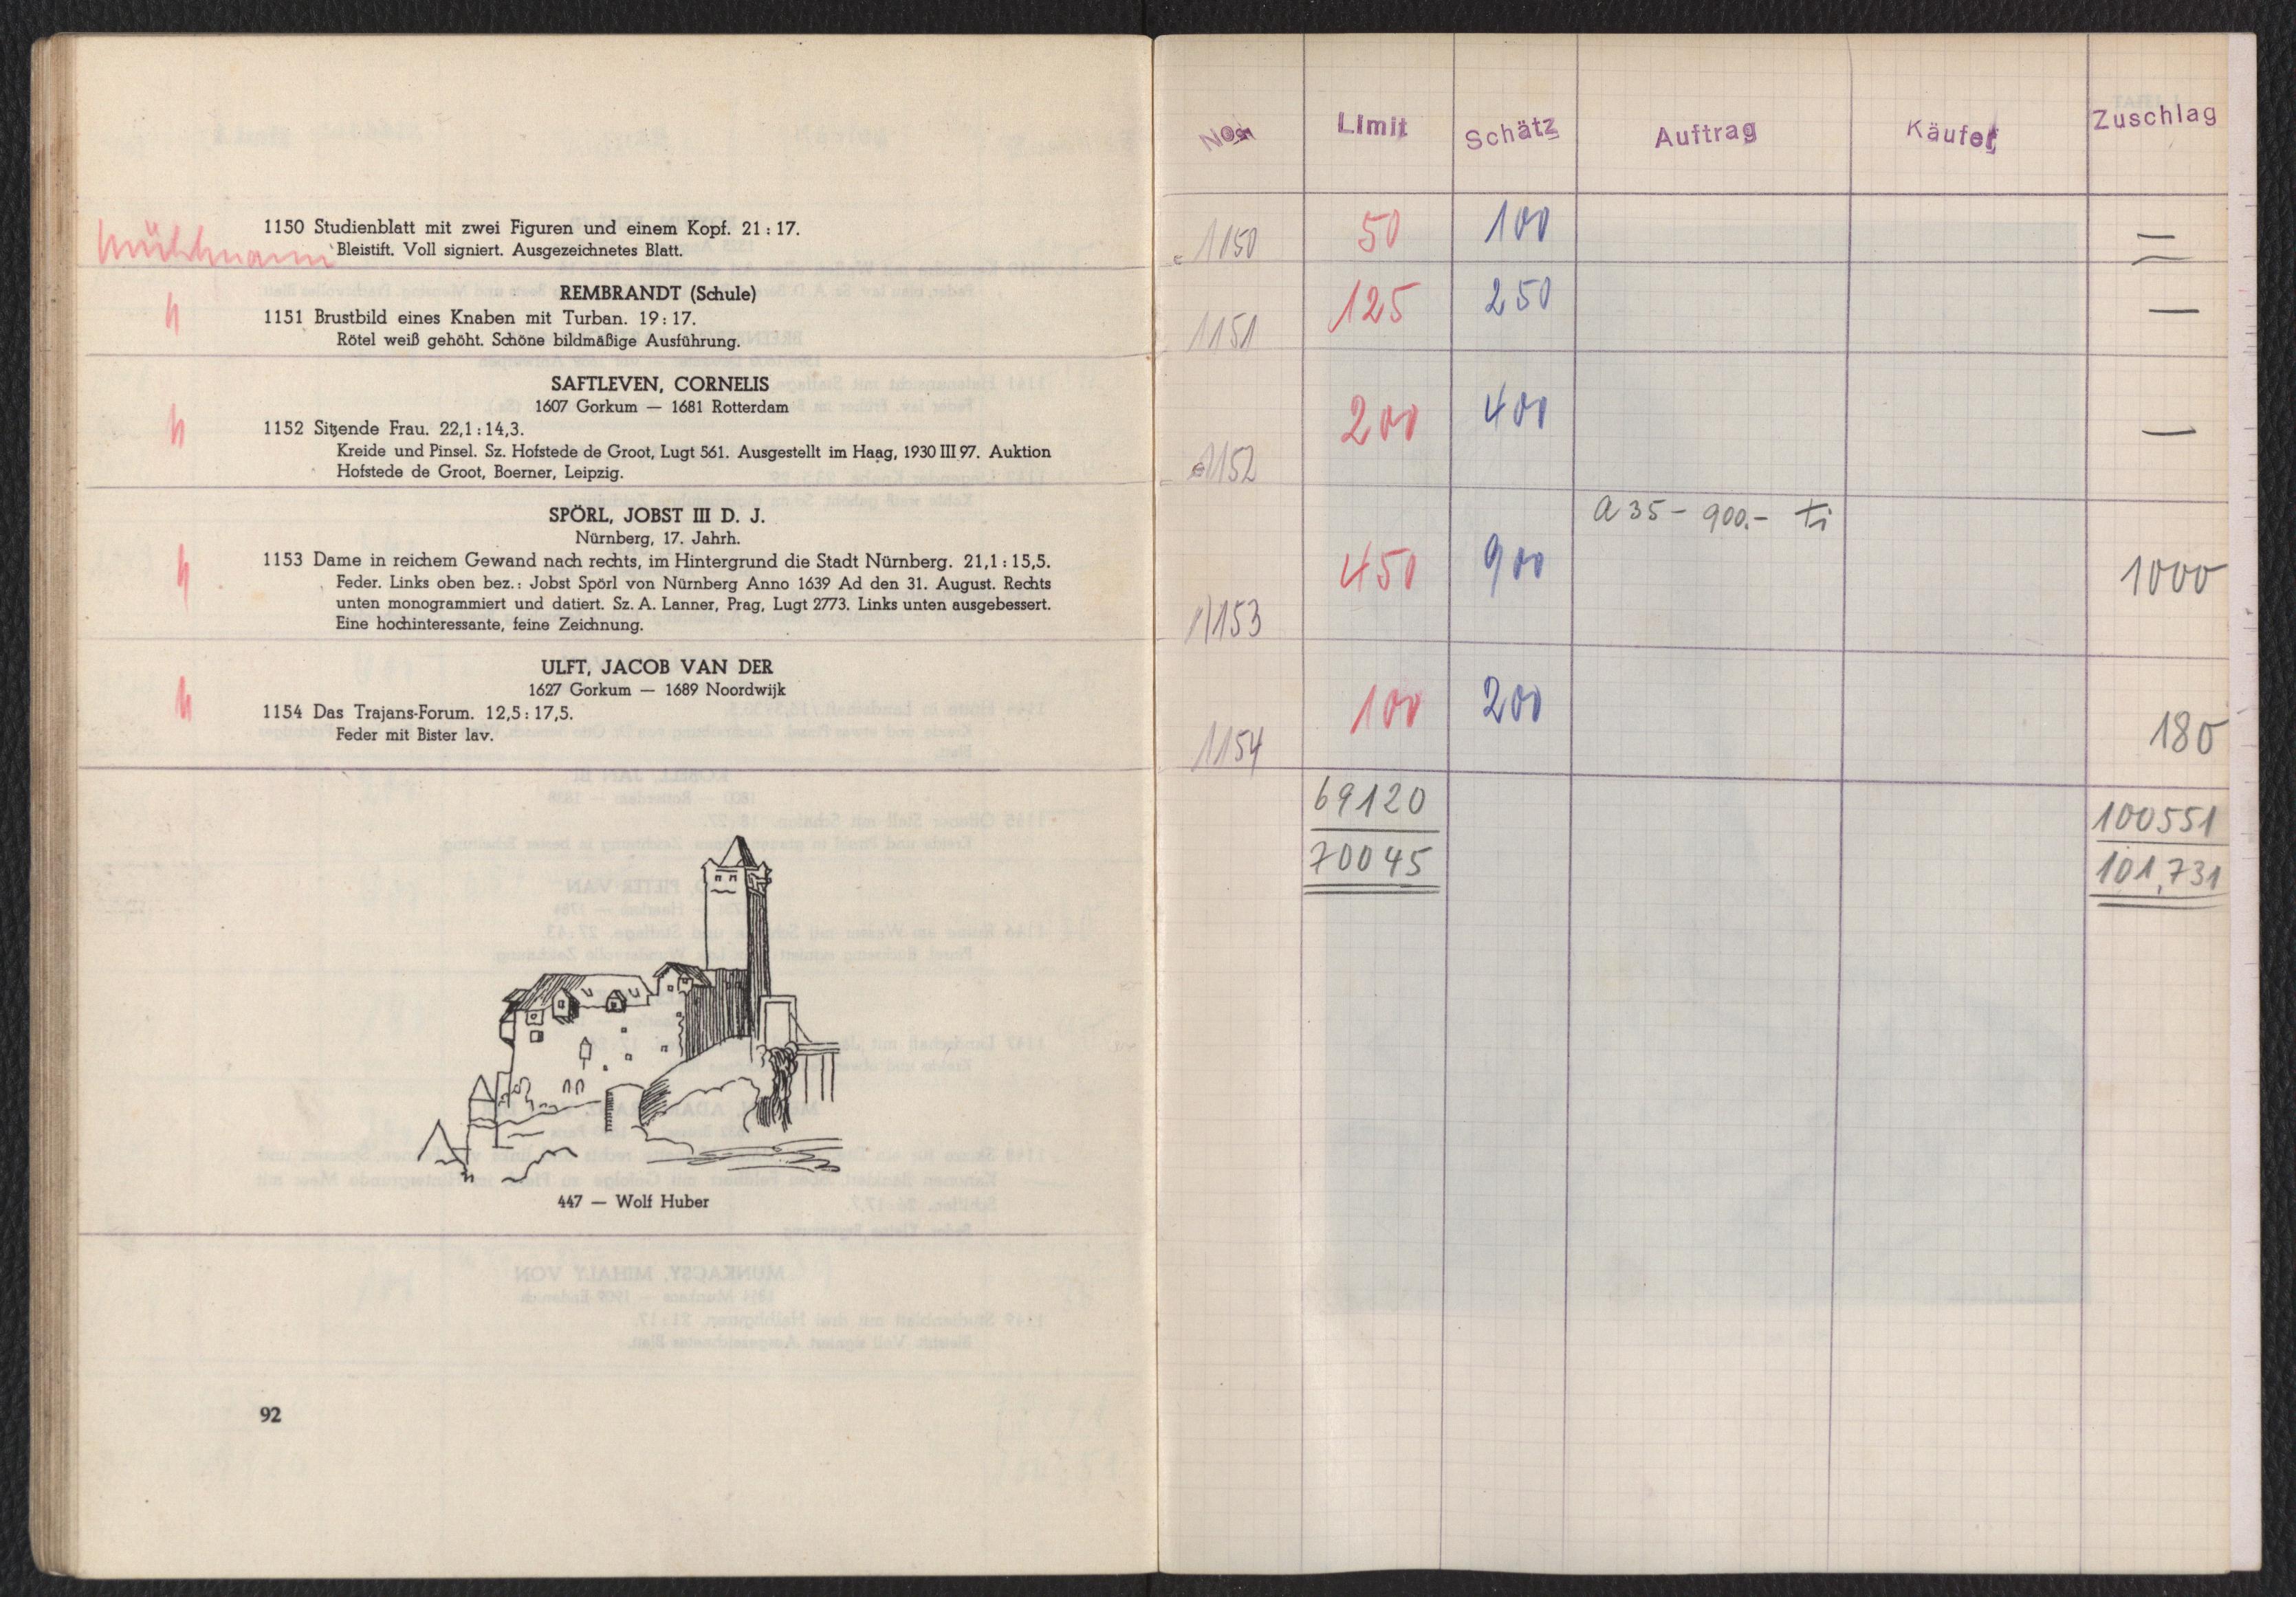 1150 Studienblatt mit zwei Figuren und einem Kopf. 21 : 17.
Bleistift. Voll signiert. Ausgezeichnetes Blatt.
REMBRANDT (Schule)
1151 Brustbild eines Knaben mit Turban. 19 : 17.
Rötel weiß gehöht. Schöne bildmäßige Ausführung.
SAFTLEVEN, CORNELIS
1607 Gorkum — 1681 Rotterdam
1152 Sitzende Frau. 22,1 : 14,3.
Kreide und Pinsel. Sz. Hofstede de Groot, Lugt 561. Ausgestellt im Haag, 1930 III 97. Auktion
Hofstede de Groot, Boerner, Leipzig.
SPÖRL, JOBST III D. J.
Nürnberg, 17. Jahrh.
1153 Dame in reichem Gewand nach rechts, im Hintergrund die Stadt Nürnberg. 21,1 : 15,5.
Feder. Links oben bez.: Jobst Spörl von Nürnberg Anno 1639 Ad den 31. August. Rechts
unten monogrammiert und datiert. Sz. A. Lanner, Prag, Lugt 2773. Links unten ausgebessert.
Eine hochinteressante, feine Zeichnung.
ULFT, JACOB VAN DER
1627 Gorkum — 1689 Noordwijk
1154 Das Trajans-Forum. 12,5 : 17,5.
Feder mit Bister lav.
447 — Wolf Huber
92
Limit Schätz Auftrag Käufer Zuschlag
1150 50 100 —
1151 125 250 —
1152 200 400 —
a 35 - 900.-
1153 450 900 1000
1154 100 200 180
69120 100551
70045 101,731